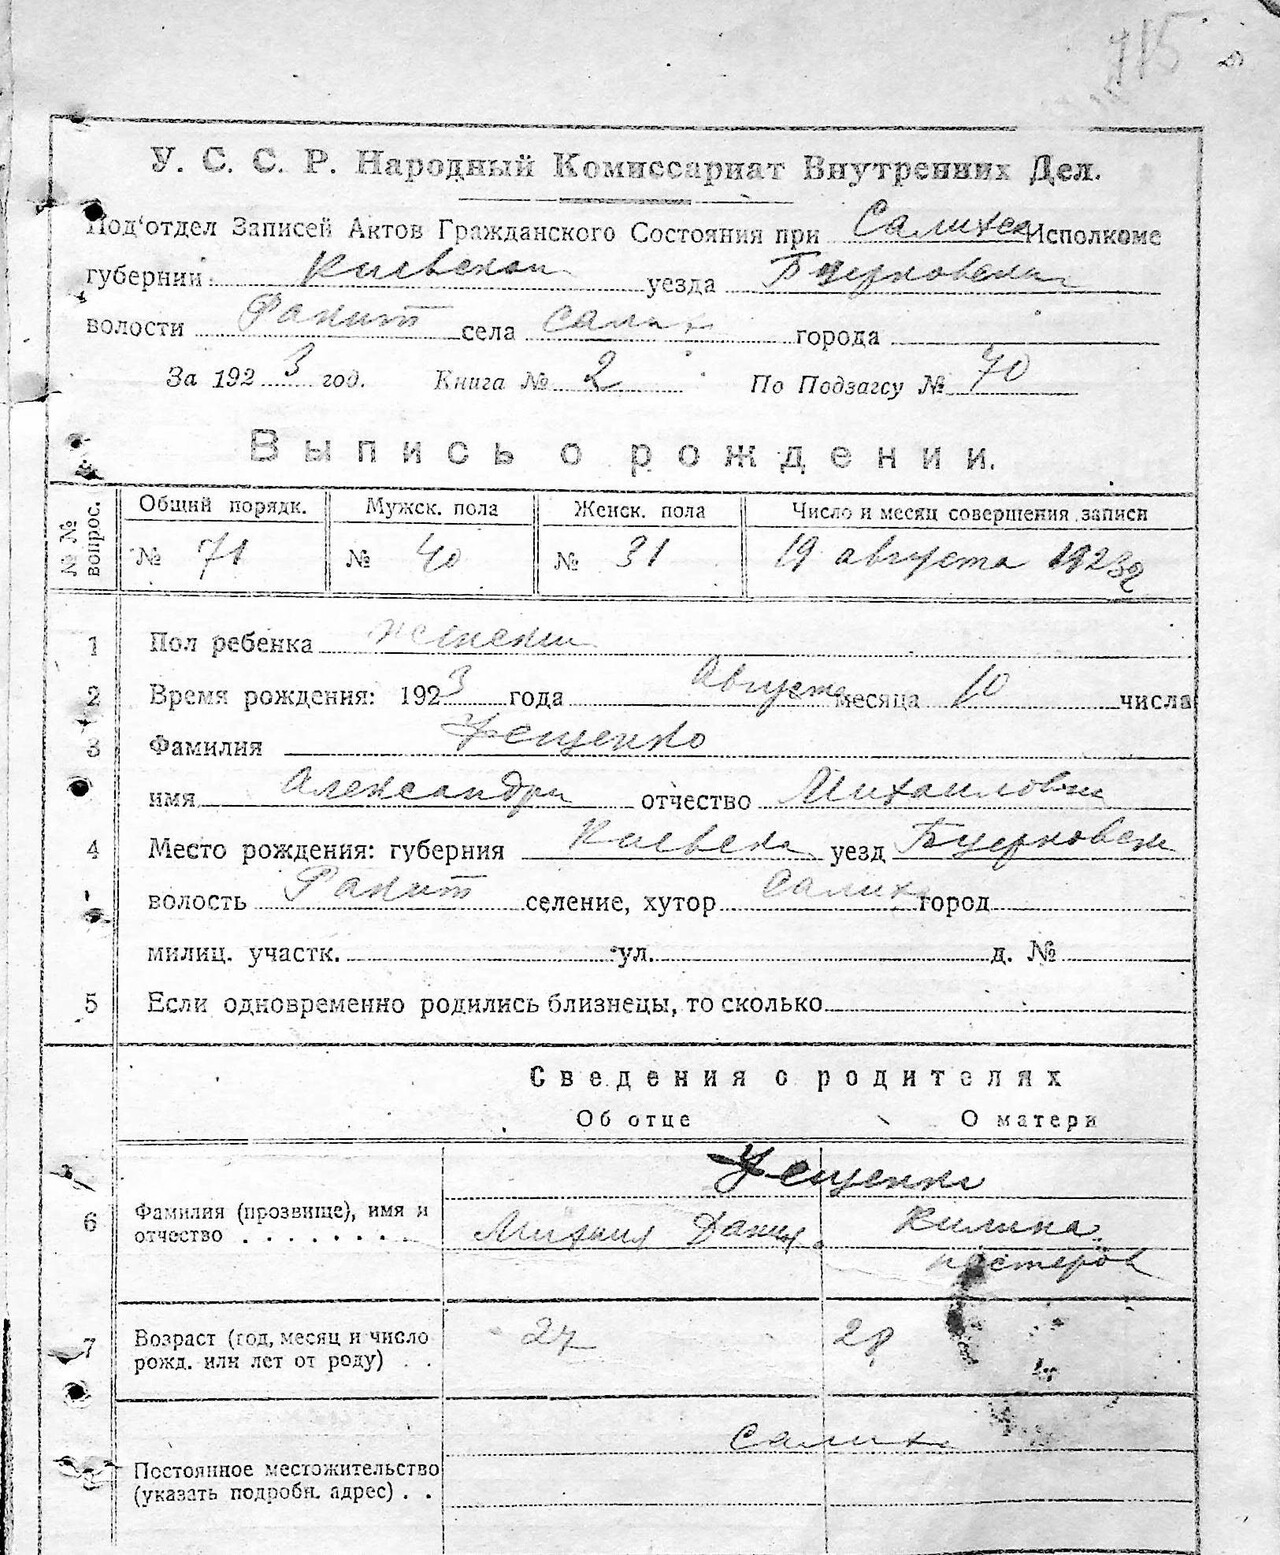 715
У. С. С. Р. Народный Комиссариат Внутренних Дел.
Под'отдел Записей Актов Гражданского Состояния при Салихск Исполкоме
губернии Киевской уезда Бцерковский
волости Ракит села Салиха города
За 1923 год. Книга № 2 По Подзагсу № 70
Выпись о рождении.
№№ вопрос. Общий порядк. Мужск. пола Женск. пола Число и месяц совершения записи
№ 71 № 40 № 31 19 августа 1923
1 Пол ребенка женский
2 Время рождения: 1923 года Августа месяца 10 числа
3 Фамилия Фещенко
имя Александра отчество Михаиловна
4 Место рождения: губерния Киевска уезд Бцерковск
волость Ракит селение, хутор Салиха город
милиц. участк. ул. д. №
5 Если одновременно родились близнецы, то сколько
Сведения о родителях
Об отце О матери
Фещенко
6 Фамилия (прозвище), имя и Михаил Данил Килина
отчество . . . . . . . . Нестеров
7 Возраст (год, месяц и число 27 28
рожд. или лет от роду) . .
Салиха
Постоянное местожительство
(указать подробн. адрес) . .